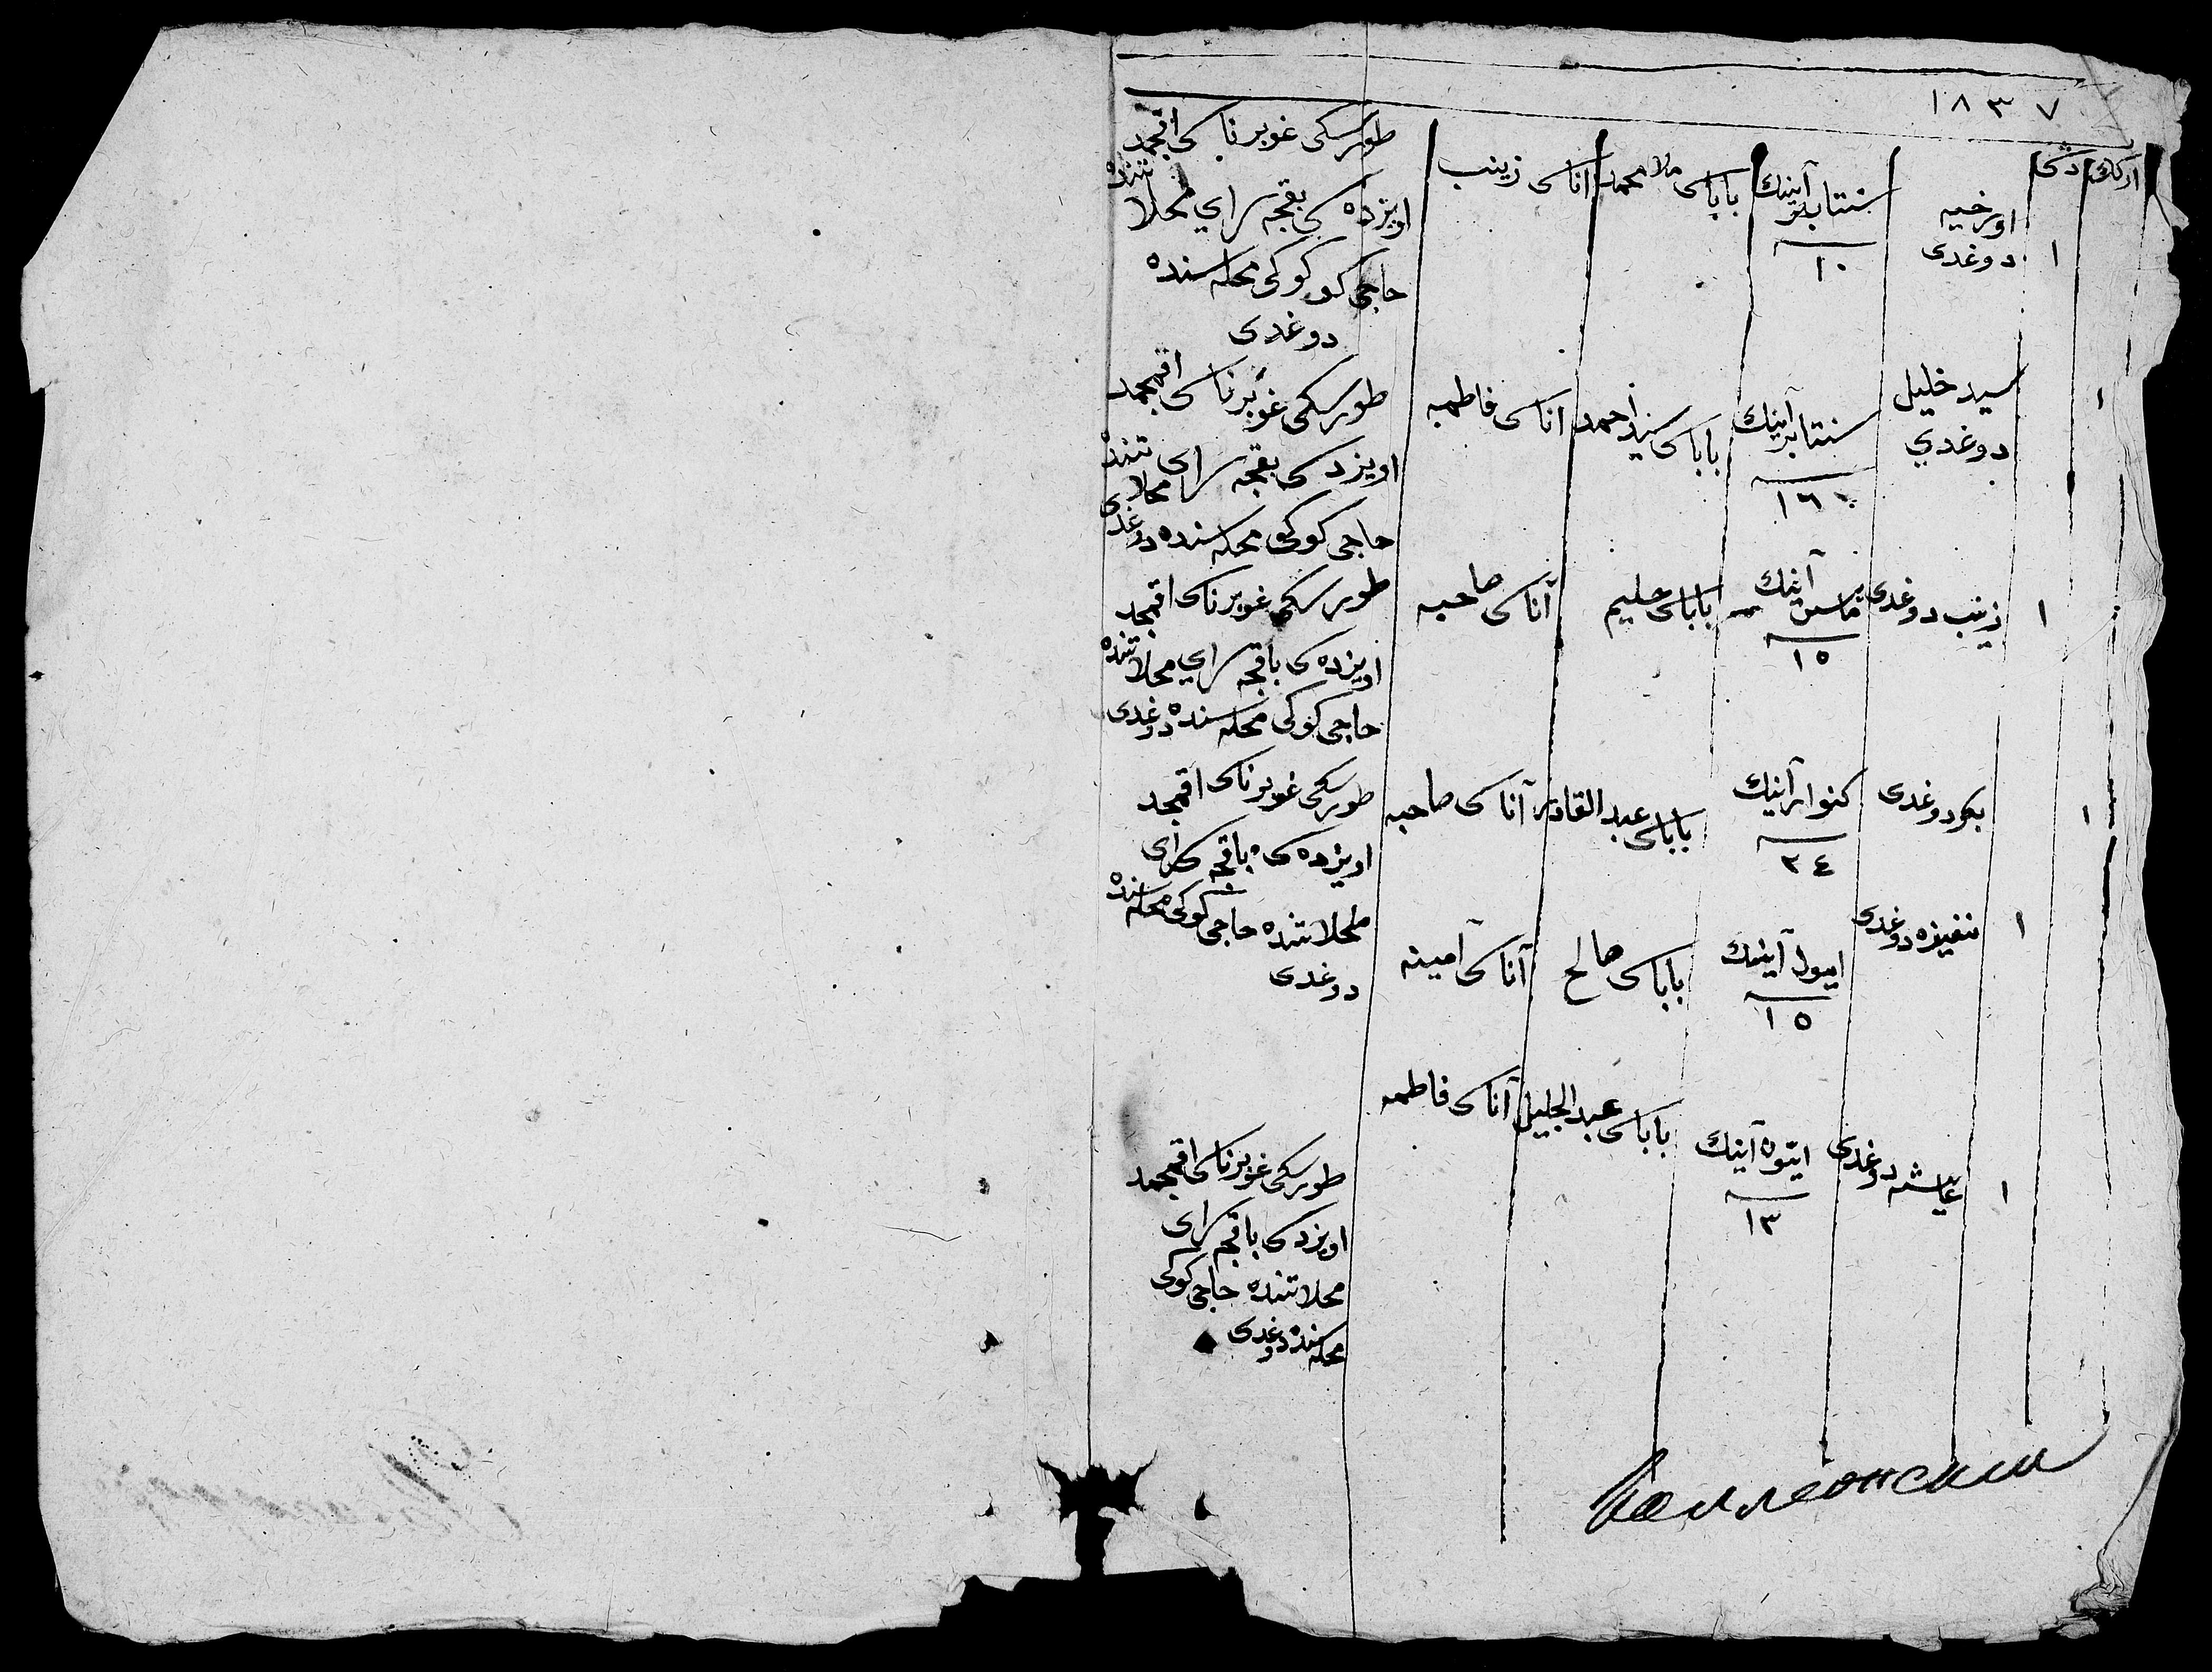 ١٨٣٧
ارکك دشی
١ اورخیه دوغدی سنتابر آینك ١٠ باباسی ملا محمد اناسی زینب
طورسکی غوبرناسی اقمجد
اویزده کی بقچه سرای محلاتنده
حاجی کوکی محله سنده
دوغدی
١ سید خلیل دوغدي سنتابر آینك ١٦ باباسی سید احمد اناسی فاطمه
طورسکی غوبرناسی اقمجد
اویزدکی بقچه سرای محلاتنده
حاجی کوکی محله سنده دوغدی
١ زینب دوغدی آینك ١٥ باباسی حلیم آناسی صاحبه
طورسکی غوبرناسی اقمجد
اویزده کی باقچه سراي محلاتنده
حاجی کوکی محله سنده دوغدی
١ بکر دوغدی کنوار آینك ٢٤ باباسی عبد القادر آناسی صاحبه
طورسکی غوبرناسی اقمجد
اویزده کی باقچه سرای
محلاتنده حاجی کوکی محله سنده
دوغدی
١ نفیزه دوغدی ایول آینك ١٥ باباسی صالح آناسی آمینه
١ عایشه دوغدی ایون آینك ١٣ باباسی عبد الجلیل آناسی فاطمه
طورسکی غوبرناسی اقمجد
اویزدکی باقچه سرای
محلاتنده حاجی کوکی
محله سنده دوغدی